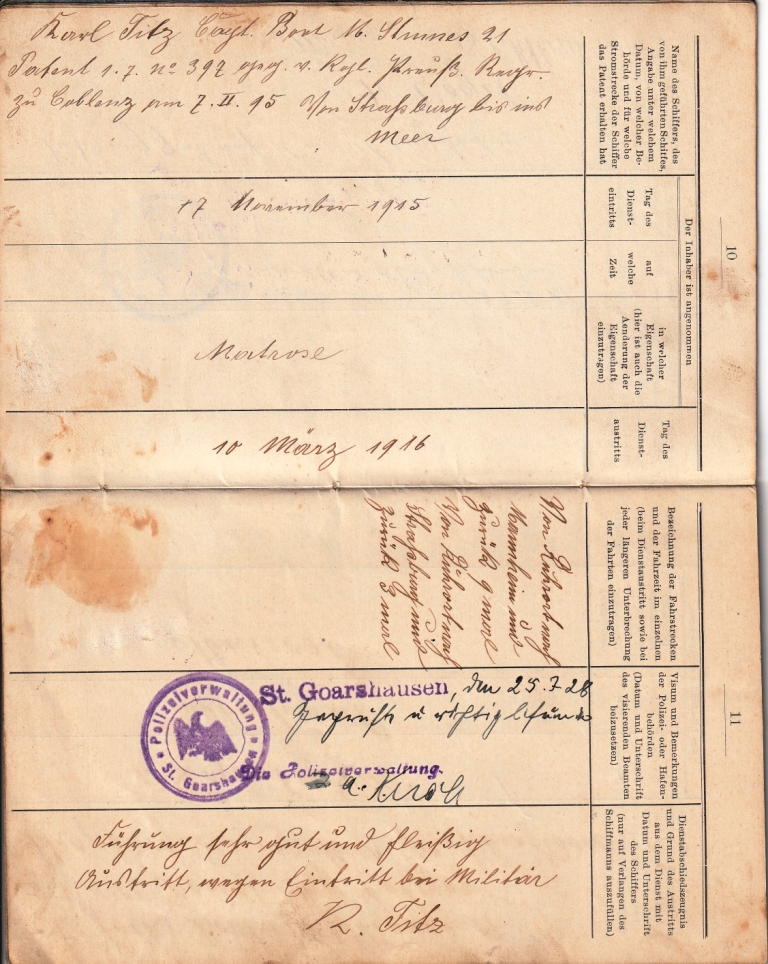 10
Name des Schiffers, des
von ihm geführten Schiffes,
Angabe unter welchem
Datum, von welcher Be-
hörde und für welche
Stromstrecke der Schiffer
das Patent erhalten hat
Karl Titz Boot M. Stinnes 21
Patent 1. 7. No 397 v. Kgl. Preuß. Regr.
zu Coblenz am 7. II. 95 Von Straßburg bis ins
Meer
Der Inhaber ist angenommen
Tag des
Dienst-
eintritts
17 November 1915
auf
welche
Zeit
in welcher
Eigenschaft
(hier ist auch die
Aenderung der
Eigenschaft
einzutragen)
Matrose
Tag des
Dienst-
austritts
10 März 1916
11
Bezeichnung der Fahrstrecken
und der Fahrzeit im einzelnen
(beim Dienstaustritt sowie bei
jeder längeren Unterbrechung
der Fahrten einzutragen)
Von Ruhrort nach
Mannheim und
zurück 9 mal
Von Ruhrort nach
Straßburg und
zurück 3 mal
Visum und Bemerkungen
der Polizei- oder Hafen-
behörden
(Datum und Unterschrift
des visierenden Beamten
beizusetzen)
St. Goarshausen, den 25.7.28
Geprüft u richtig befunden
Die Polizeiverwaltung.
Polizeiverwaltung
St. Goarshausen
Dienstabschiedszeugnis
und Grund des Austritts
aus dem Dienst mit
Datum und Unterschrift
des Schiffers
(nur auf Verlangen des
Schiffmanns auszufüllen)
Führung sehr gut und fleißig
Austritt, wegen Eintritt bei Militär
K. Titz